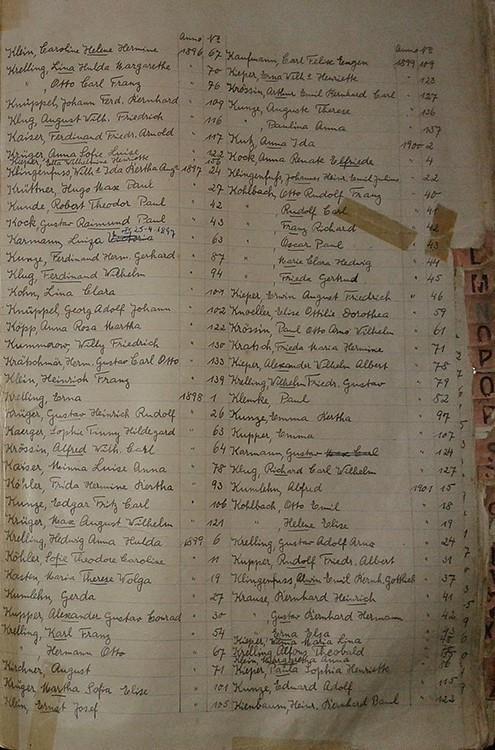 Anno No
Klein, Caroline Helene Hermine 1896 67
Krelling, Lina Hulda Margarethe " 70
" , Otto Carl Franz " 96
Knüppel, Johann Ferd. Bernhard " 109
Klug, August Wilh. Friedrich " 116
Kaiser, Ferdinand Friedr. Arnold " 117
Krüger, Anna Sofie Luise
Klingenfuss, Wilh. Ida Bertha 1897 24
Krüttner, Hugo Max Paul " 27
Kunde, Robert Theodor Paul " 42
Kock, Gustav Raimund Paul " 43
Karmann, Luise " 63
Kunze, Ferdinand Herm. Gerhard " 87
Klug, Ferdinand Wilhelm " 94
Kohn, Lina Clara " 101
Knüppel, Georg Adolf Johann " 102
Kopp, Anna Rosa Martha " 122
Kummerow, Willy Friedrich " 130
Krätschmar Herm. Gustav Carl Otto " 133
Klein, Heinrich Franz " 139
Krelling, Erna 1898 1
Krüger, Gustav Heinrich Rudolf " 26
Kaerger, Sophie Hildegard " 63
Krössin, Alfred Wilh. Carl " 64
Kaiser, Minna Luise Anna " 78
Köhler, Frida Hermine Bertha " 93
Kunze, Edgar Fritz Carl " 106
Krüger, Max August Wilhelm " 121
Krelling, Hedwig Anna Hulda 1899 6
Köhler, Sofie Theodore Caroline " 11
Kasten, Maria Therese Wolga " 19
Kumlehn, Gerda " 27
Kupper, Alexander Gustav Conrad " 30
Krelling, Karl Franz " 54
Hermann Otto " 67
Kirchner, August " 71
Krüger, Martha Sofia Elise " 101
Klein, Ernst Josef " 105
Anno No
Kaufmann, Carl Felix Eugen 1899 109
Kieper, Erna Wilh. Henriette " 123
Krössin, Arthur Emil Bernhard Carl " 127
Kunze, Auguste Therese " 136
" , Paulina Anna " 137
Kutz, Anna Ida 1900 2
Kock, Anna Renate Elfriede " 4
Klingenfuss, Johannes Heinr. Emil Julius " 22
Kohlbach, Otto Rudolf Franz " 40
" Rudolf Carl " 41
" Franz Richard " 42
" Oscar Paul " 43
" Marie Clara Hedwig " 44
" Frieda Gertrud " 45
Kieper, Erwin August Friedrich " 46
Knoeller, Elise Ottilie Dorothea " 59
Krössin, Paul Otto Arno Wilhelm " 61
Kratsch, Frieda Maria Hermine " 71
Kieper, Alexander Wilhelm Albert " 78
Krelling, Wilhelm Friedr. Gustav " 79
Klemke, Paul " 82
Kunze, Emma Bertha " 97
Kupper, Emma " 107
Karmann, Gustav Carl " 124
Klug, Richard Carl Wilhelm " 127
Kumlehn, Alfred 1901 15
Kohlbach, Otto Emil " 18
" , Helene Elise " 19
Krelling, Gustav Adolf Arno " 24
Kupper, Rudolf Friedr. Albert " 31
Klingenfuss, Erwin Emil Bernh. Gottlieb " 37
Krause, Bernhard Heinrich " 41
" Gustav Bernhard Hermann " 42
" Erna Elsa
Kieper, Maria Lina
Krelling, Alfons Theobald
Klein, Margaretha Anna
Kieper, Paula Sophia Henriette
Kunze, Eduard Adolf " 115
Kienbaum, Heinr. Bernhard Paul " 122
L
M
N
O
P